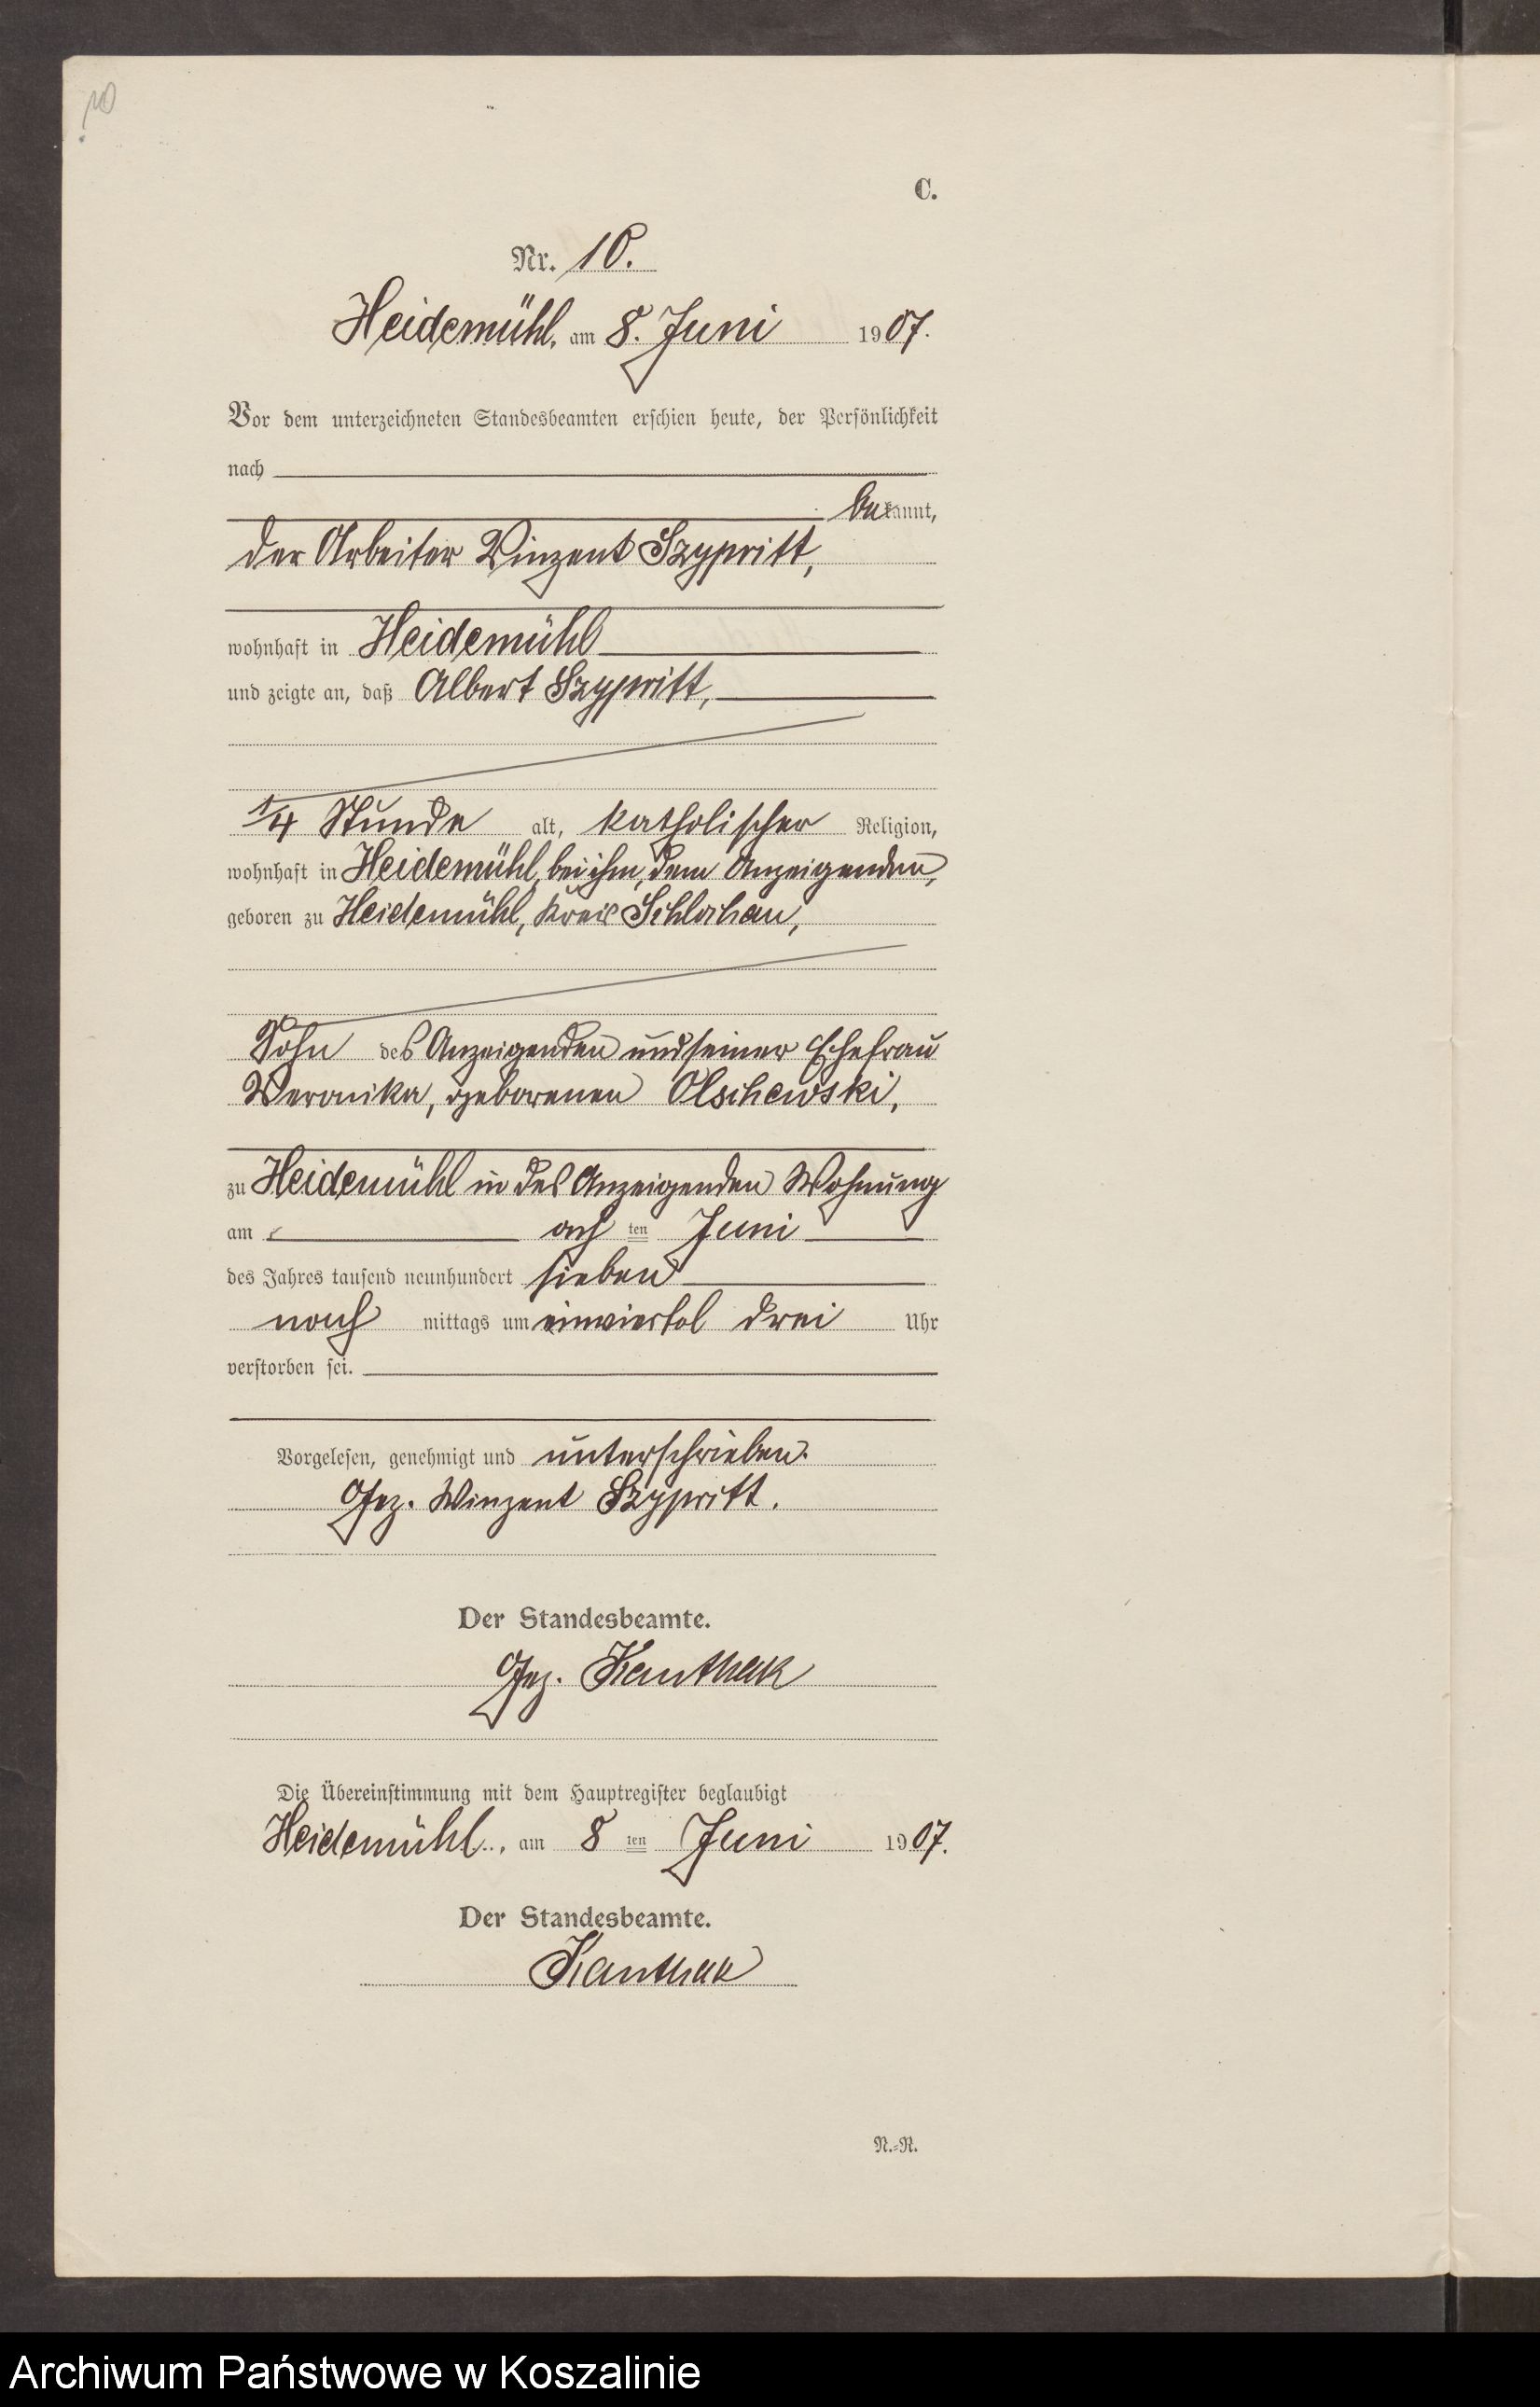 10
C.
Nr. 10.
Heidemühl, am 8. Juni 1907.
Vor dem unterzeichneten Standesbeamten erschien heute, der Persönlichkeit
nach
bekannt,
der Arbeiter Vinzent Szypritt,
wohnhaft in Heidemühl
und zeigte an, daß Albert Szypritt,
1/4 Stunde alt, katholischer Religion,
wohnhaft in Heidemühl, bei ihm, dem Anzeigenden,
geboren zu Heidemühl, Kreis Schlochau,
Sohn des Anzeigenden und seiner Ehefrau
Weronika, geborenen Olschewski,
zu Heidemühl in des Anzeigenden Wohnung
am ach ten Juni
des Jahres tausend neunhundert sieben
nach mittags um einviertel drei Uhr
verstorben sei.
Vorgelesen, genehmigt und unterschrieben.
Gez. Winzent Szypritt.
Der Standesbeamte.
Gez. Kanthak
Die Übereinstimmung mit dem Hauptregister beglaubigt
Heidemühl, am 8 ten Juni 1907.
Der Standesbeamte.
Kanthak
N.=R.
Archiwum Państwowe w Koszalinie